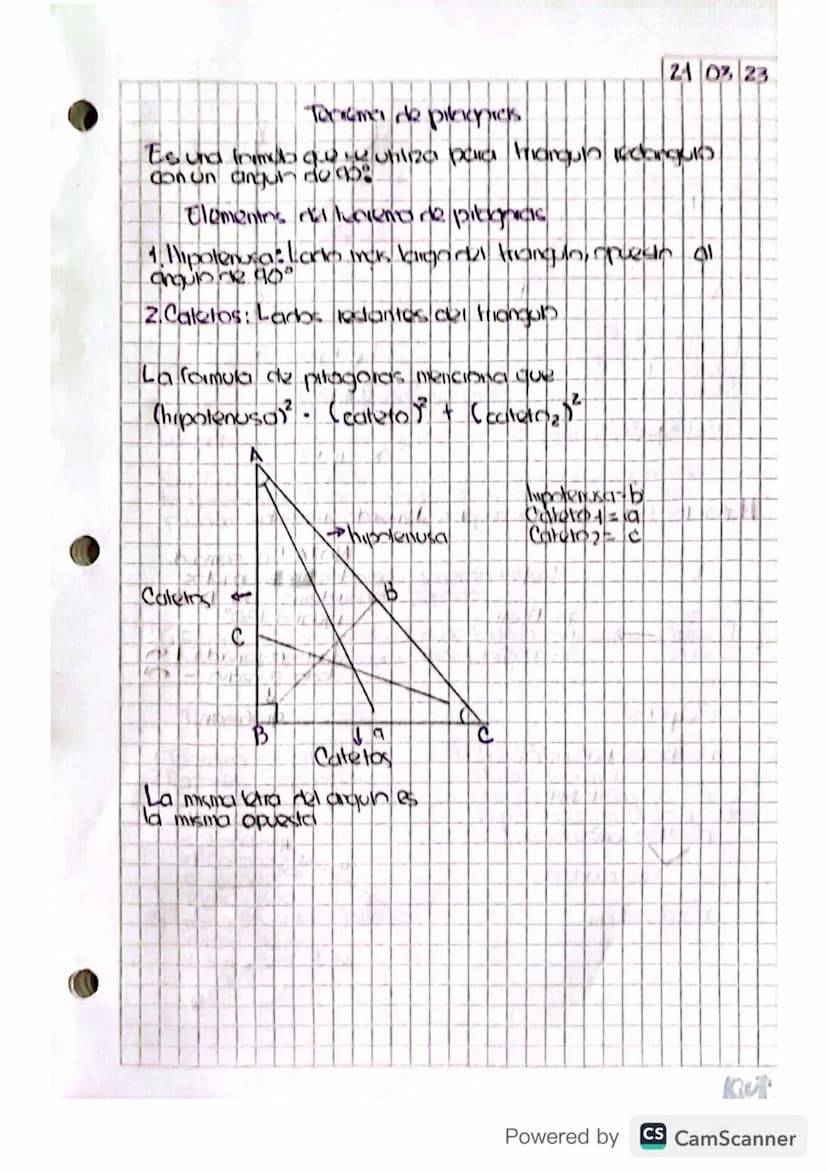 21 03 23
Teorema de pitagoras
Es una formula que se utiliza para triangulo rectangulo
con un angulo de 90°
Elementos del teorema de pitagoras
1. Hipotenusa: Lado mas largo del triangulo, opuesto al
angulo de 90°
2. Catetos: Lados restantes del triangulo
La formula de pitagoras menciona que
(hipotenusa)² = (cateto)² + (cateto₂)²
A
hipotenusa = b
Cateto 1 = a
Cateto 2 = c
→ hipotenusa
Catetos ←
B
C
B
↓ a
C
Catetos
La misma letra del angulo es
la misma opuesta
Powered by CS CamScanner